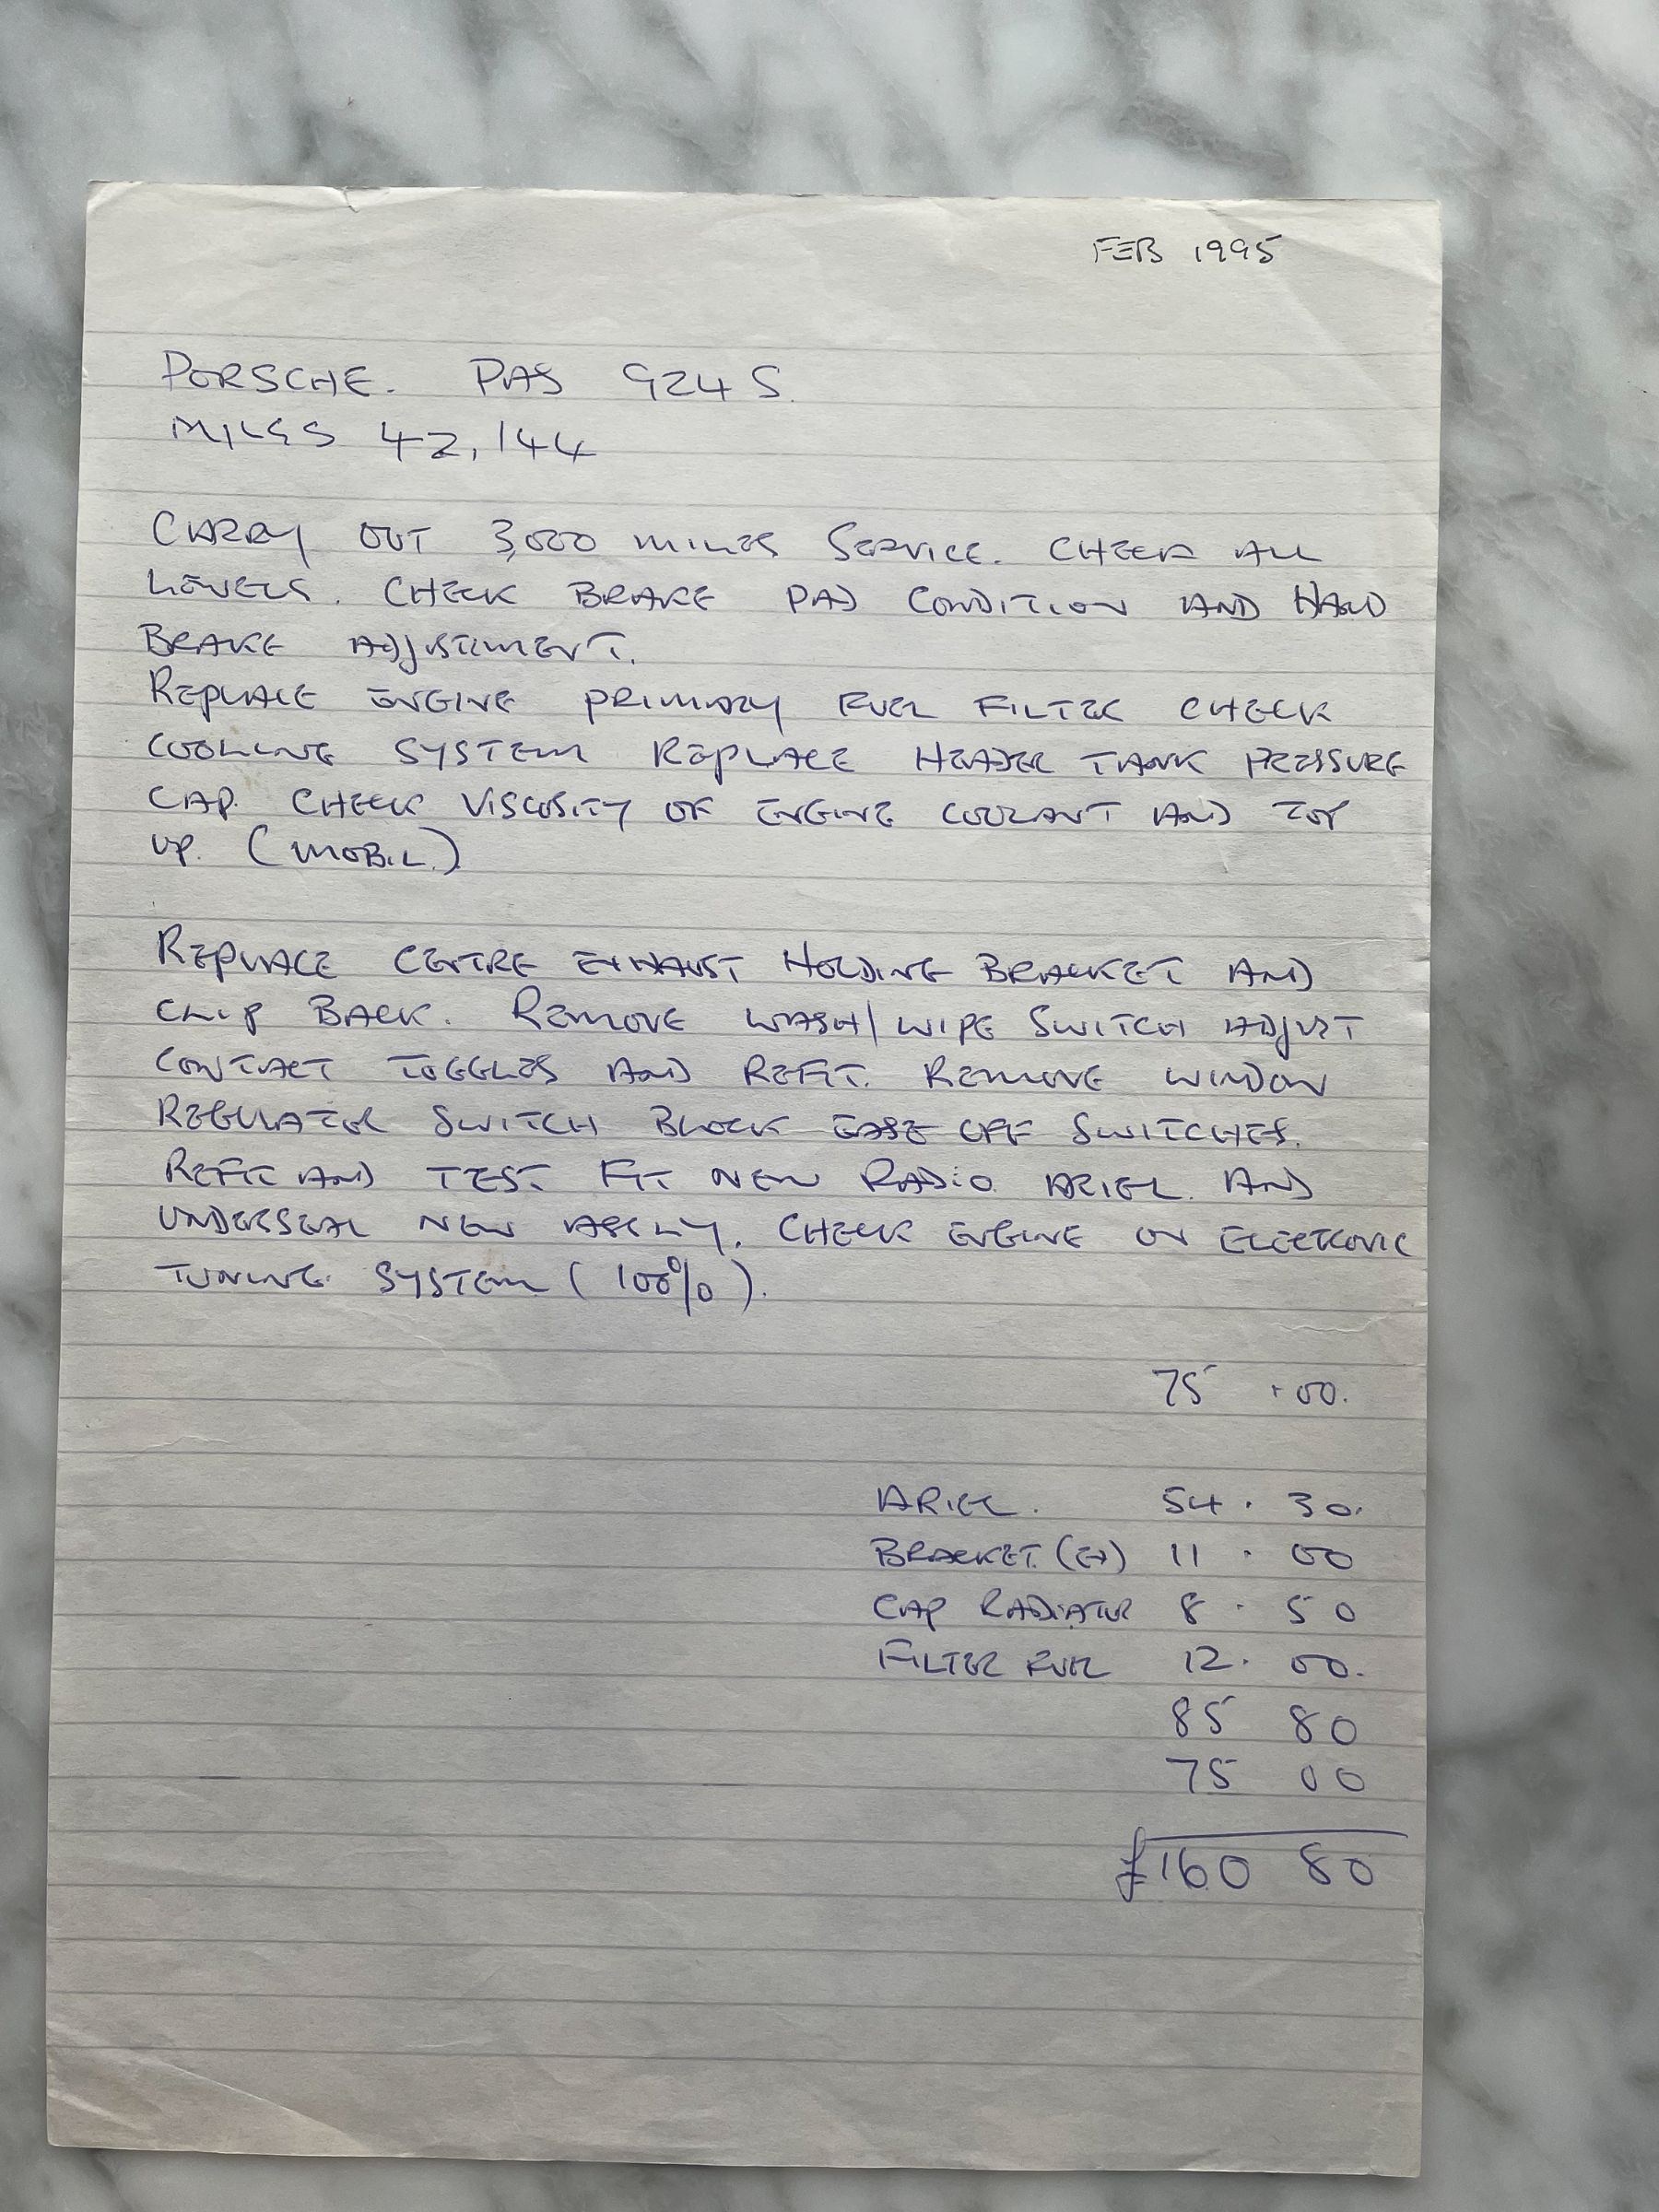 FEB 1995
PORSCHE. PAS 924 S.
MILES 42,144
CARRY OUT 3,000 MILES SERVICE. CHECK ALL
LEVELS. CHECK BRAKE PAD CONDITION AND HAND
BRAKE ADJUSTMENT.
REPLACE ENGINE PRIMARY FUEL FILTER CHECK
COOLING SYSTEM REPLACE HEADER TANK PRESSURE
CAP. CHECK VISCOSITY OF ENGINE COOLANT AND TOP
UP. (MOBIL.)
REPLACE CENTRE EXHAUST HOLDING BRACKET AND
CLIP BACK. REMOVE WASH/WIPE SWITCH ADJUST
CONTACT TOGGLES AND REFIT. REMOVE WINDOW
REGULATOR SWITCH BLOCK EASE OFF SWITCHES.
REFIT AND TEST. FIT NEW RADIO ARIEL. AND
UNDERSEAL NEW ASSLY. CHECK ENGINE ON ELECTRONIC
TUNING SYSTEM (100%).
75 .00.
ARIEL. 54 . 30.
BRACKET (EX) 11 . 00
CAP RADIATOR 8 . 50
FILTER FUEL 12. 00.
85 80
75 00
£160 80